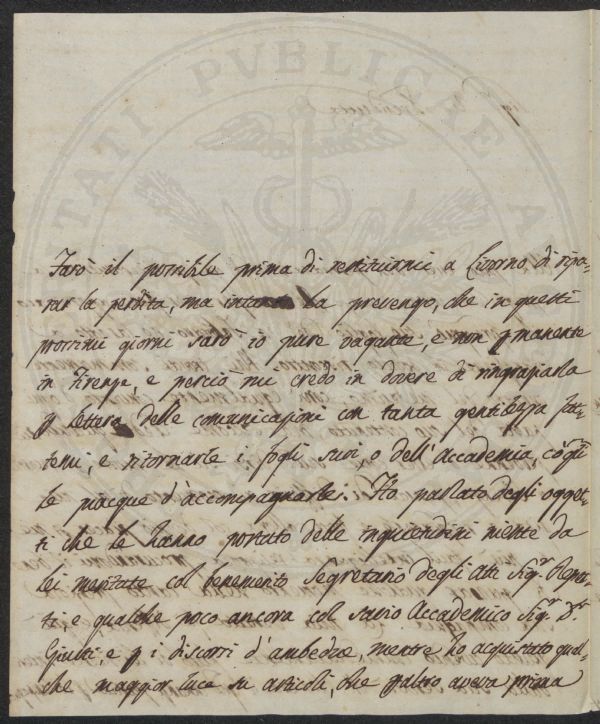 PVBLICAE
Farò il possibile prima di restituirmi a Livorno di ripa-
rar la perdita, ma intanto La prevengo, che in questi
prossimi giorni sarò io pure vagante, e non pmanente
in Firenze, e perciò mi credo in dovere di ringraziarla
p lettera delle comunicazioni con tanta gentilezza fat-
temi, e ritornarle i fogli suoi, o dell'Accademia, co' qli
le piacque d'accompagnarle. Ho parlato degli ogget-
ti che le hanno portato delle inquietudini niente da
lei meritate col benemerito Segretario degli Atti Sigr.
ti e qualche poco ancora col savio Accademico Sigr. Dr.
Giusti, e p i discorsi d'ambedue, mentre ho acquistato qual-
che maggior luce su articoli, che p altro aveva prima